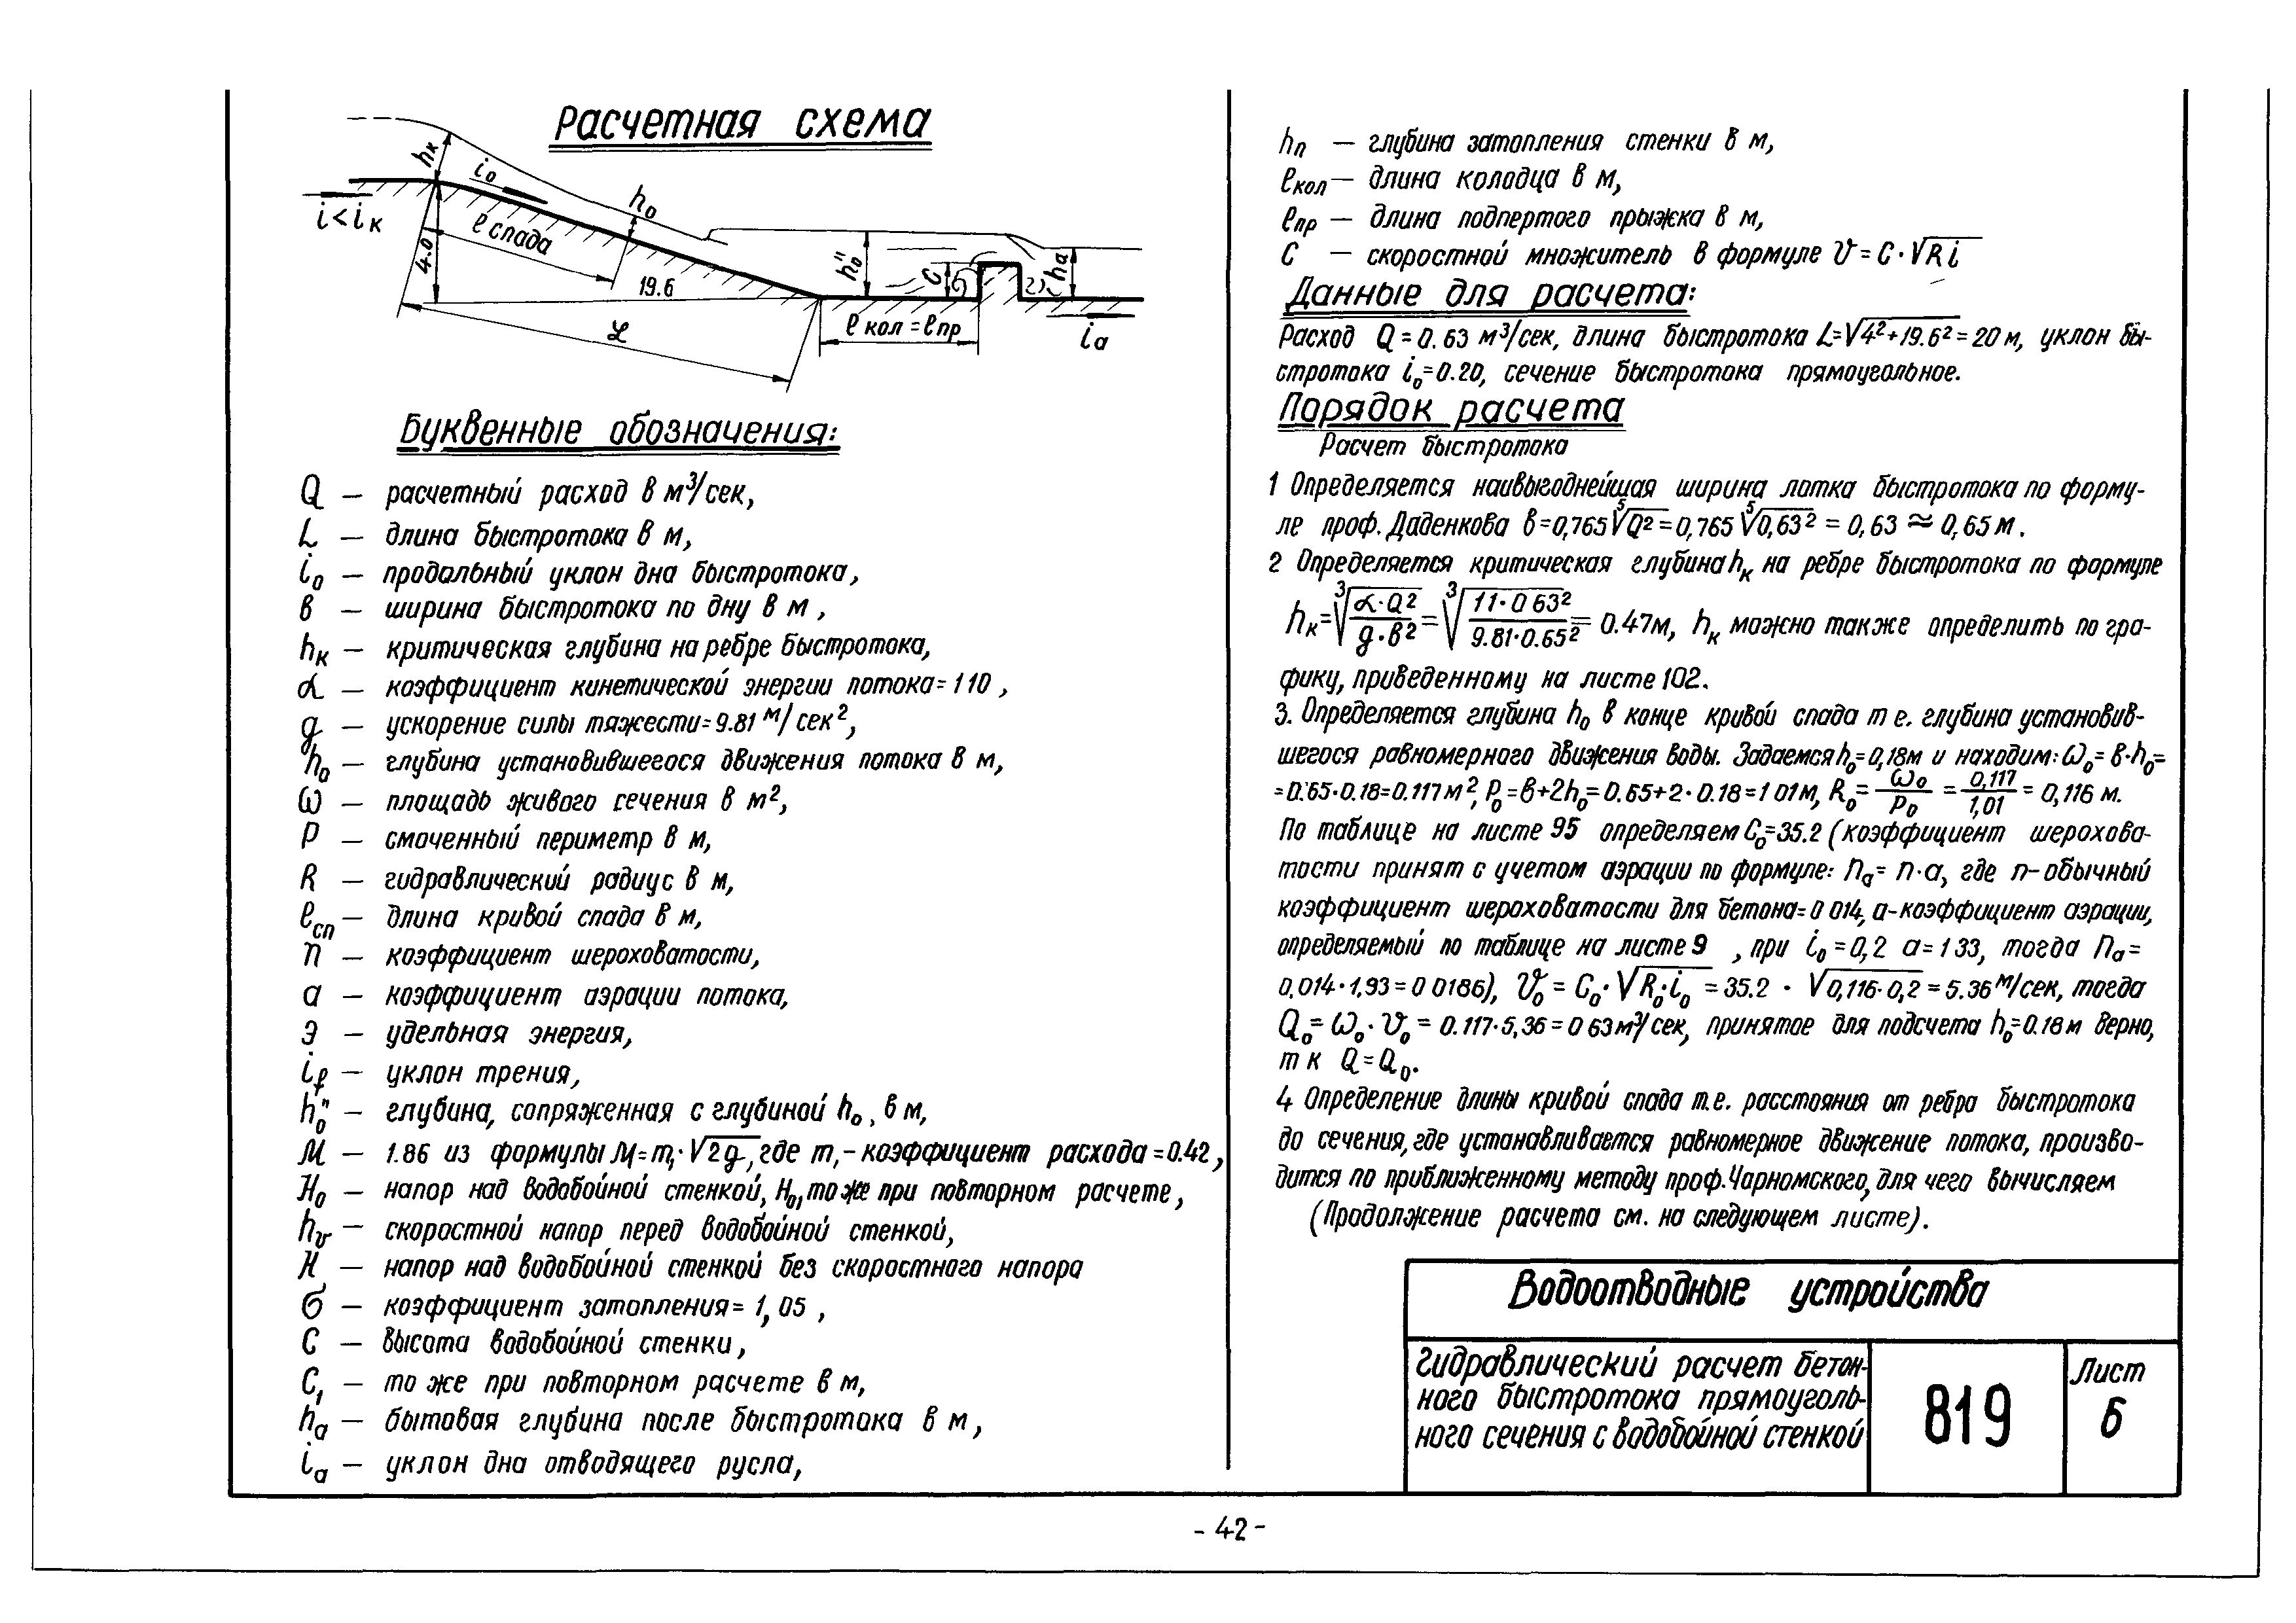 Расчетная схема
hк
i₀
h₀
i<iк
ℓ спада
4.0
19.6
h₀"
C
hа
ℒ
ℓ кол = ℓ пр
iа
Буквенные обозначения:
Q — расчетный расход в м³/сек,
L — длина быстротока в м,
i₀ — продольный уклон дна быстротока,
в — ширина быстротока по дну в м,
hк — критическая глубина на ребре быстротока,
α — коэффициент кинетической энергии потока = 1 10,
g — ускорение силы тяжести = 9.81 м/сек²,
h₀ — глубина установившегося движения потока в м,
ω — площадь живого сечения в м²,
P — смоченный периметр в м,
R — гидравлический радиус в м,
ℓсп — длина кривой спада в м,
n — коэффициент шероховатости,
a — коэффициент аэрации потока,
Э — удельная энергия,
if — уклон трения,
h₀" — глубина, сопряженная с глубиной h₀, в м,
M — 1.86 из формулы M = m₁·√2g, где m₁ - коэффициент расхода = 0.42,
H₀ — напор над водобойной стенкой, H₀₁ то же при повторном расчете,
hv — скоростной напор перед водобойной стенкой,
H — напор над водобойной стенкой без скоростного напора
б — коэффициент затопления = 1,05,
C — высота водобойной стенки,
C₁ — то же при повторном расчете в м,
hа — бытовая глубина после быстротока в м,
iа — уклон дна отводящего русла,
hп — глубина затопления стенки в м,
ℓкол — длина колодца в м,
ℓпр — длина подпертого прыжка в м,
C — скоростной множитель в формуле V = C·√Ri
Данные для расчета:
Расход Q = 0.63 м³/сек, длина быстротока L=√4²+19.6² = 20 м, уклон бы-
стротока i₀=0.20, сечение быстротока прямоугольное.
Порядок расчета
Расчет быстротока
1 Определяется наивыгоднейшая ширина лотка быстротока по форму-
ле проф. Даденкова в=0,765⁵√Q² = 0,765 ⁵√0,63² = 0,63 ≈ 0,65 м.
2 Определяется критическая глубина hк на ребре быстротока по формуле
hк = ³√(α·Q²/g·в²) = ³√(1 1·0 63²/9.81·0.65²) = 0.47м, hк можно также определить по гра-
фику, приведенному на листе 102.
3. Определяется глубина h₀ в конце кривой спада т е. глубина установив-
шегося равномерного движения воды. Задаемся h₀=0,18м и находим: ω₀= в·h₀=
=0.65·0.18=0.117м², P₀=в+2h₀=0.65+2·0.18=1 01м, R₀= ω₀/P₀ = 0,117/1,01 = 0,116 м.
По таблице на листе 95 определяем C₀=35.2 (коэффициент шерохова-
тости принят с учетом аэрации по формуле: nа= n·a, где n-обычный
коэффициент шероховатости для бетона=0 014, a-коэффициент аэрации,
определяемый по таблице на листе 9 , при i₀=0,2 a=1 33, тогда nа=
0,014·1,93=0 0186), V₀=C₀·√R₀·i₀ = 35.2 · √0,116·0,2 = 5.36 м/сек, тогда
Q₀=ω₀·V₀= 0.117·5,36=0 63м³/сек, принятое для подсчета h₀=0.18м верно,
т к Q=Q₀.
4 Определение длины кривой спада т.е. расстояния от ребра быстротока
до сечения, где устанавливается равномерное движение потока, произво-
дится по приближенному методу проф. Чарномского, для чего вычисляем
(Продолжение расчета см. на следующем листе).
Водоотводные устройства
Гидравлический расчет бетон-
ного быстротока прямоуголь-
ного сечения с водобойной стенкой
819
Лист
6
- 42 -